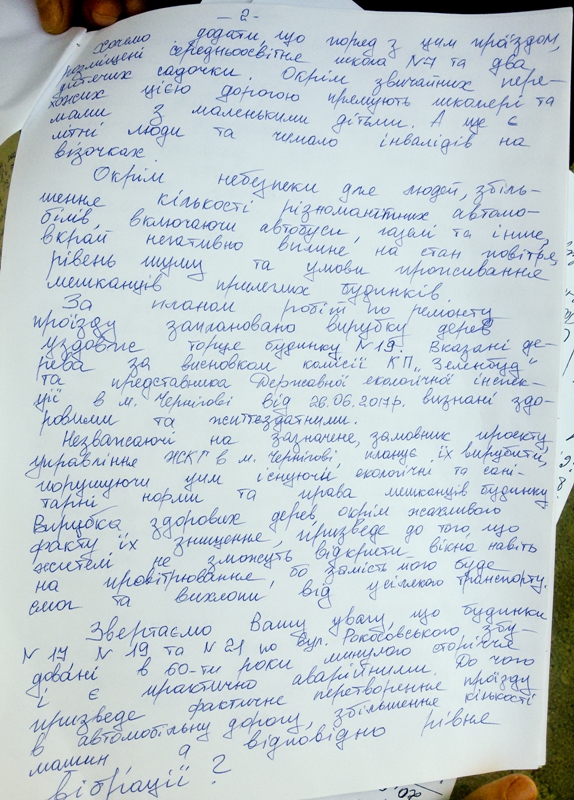 - 2 -
Хочемо додати, що поряд з цим проїздом,
розміщені середньоосвітня школа №7 та два
дитячих садочки. Окрім звичайних пере-
хожих цією дорогою прямують школярі та
мами з маленькими дітьми. А ще є
літні люди та чимало інвалідів на
візочках.
Окрім небезпеки для людей, збіль-
шення кількості різноманітних автомо-
білів, включаючи автобуси, газелі та інше,
вкрай негативно вплине на стан повітря,
рівень шуму та умови проживання
мешканців прилеглих будинків.
За планом робіт по ремонту
проїзду заплановано вирубку дерев
уздовж торця будинку №19. Вказані де-
рева за висновком комісії КП "Зеленбуд"
та представника Державної екологічної інспек-
ції в м. Чернігові від 26.06.2017р. визнані здо-
ровими та життєздатними.
Незважаючи на зазначене, замовник проекту,
управління ЖКГ в м. Чернігові, планує їх вирубити,
порушуючи цим існуючі екологічні та сані-
тарні норми та права мешканців будинку
Вирубка здорових дерев, окрім жахливого
факту їх знищення, призведе до того, що
жителі не зможуть відкрити вікна навіть
на провітрювання, бо замість него буде
смог та вихлопи від усілякого транспорту.
Звертаємо Вашу увагу, що будинки
№17 №19 та №21 по вул. Рокосовського збу-
довані в 60-ти роки минулого сторіччя
і є практично аварійними. До чого
призведе фактичне перетворення проїзду
в автомобільну дорогу, збільшення кількості
машин а відповідно рівня
вібрації?